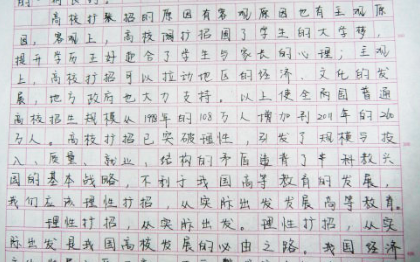 高校扩招的原因有客观原因也有主观原
因,客观上,高校扩招圆了学生的大学梦,
提升学历正好迎合了学生与家长的心理;主观
上,高校扩招可以拉动地区的经济、文化的发
展,地方政府也大力支持。以上使全国普通
高校招生规模从1998年的108万人增加到2011年的
万人。高校扩招已突破理性,引发了规模与投
入、质量、就业、结构的矛盾违背了科教兴
国的基本战略,不利于我国高等教育的发展,
我们应走理性扩招,从实际出发发展高等教育。
理性扩招,从实际出发。理性扩招,从实
际出发是我国高校发展的必由之路。我国经济